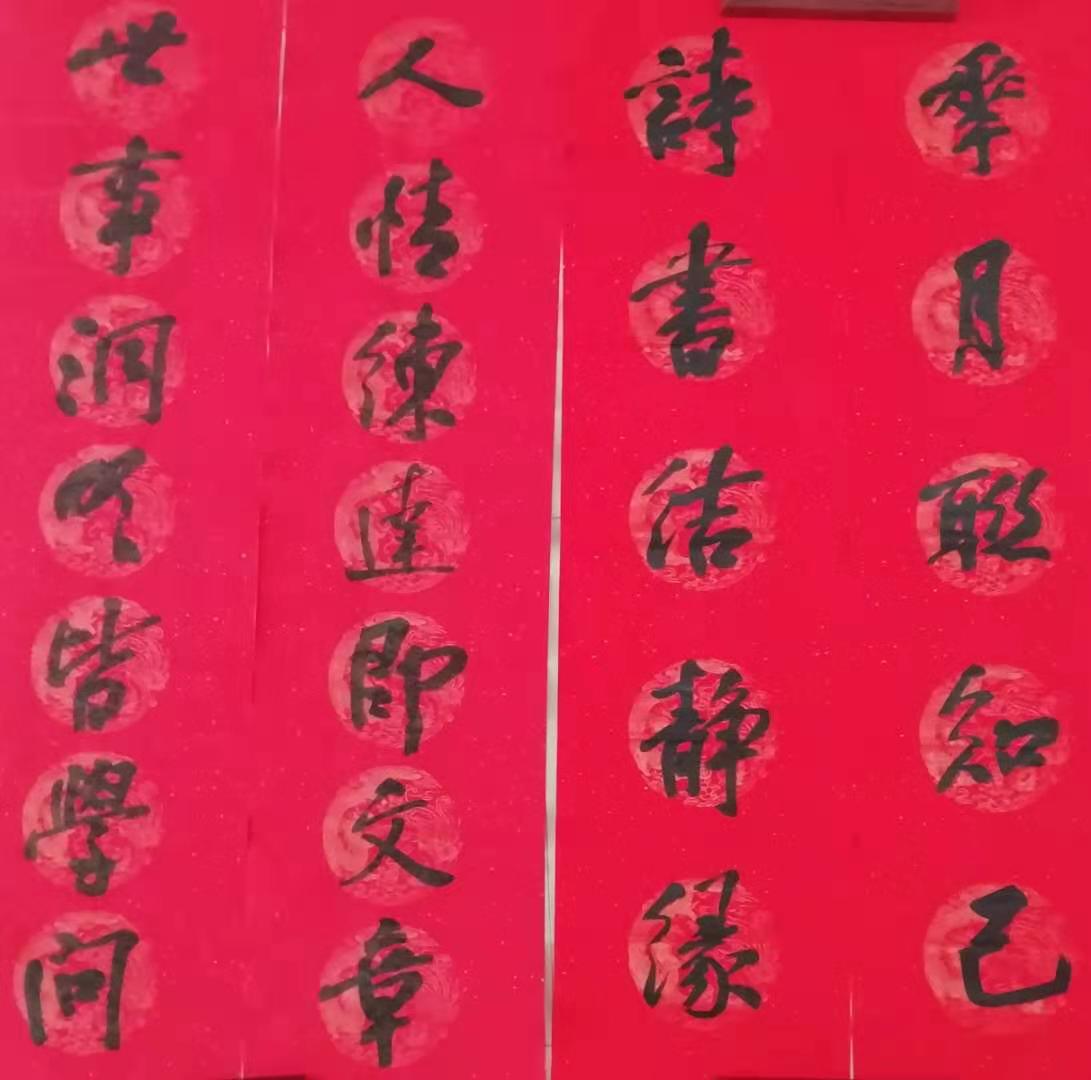 世事洞明皆學問
人情練達即文章
詩書結静緣
月聯知己